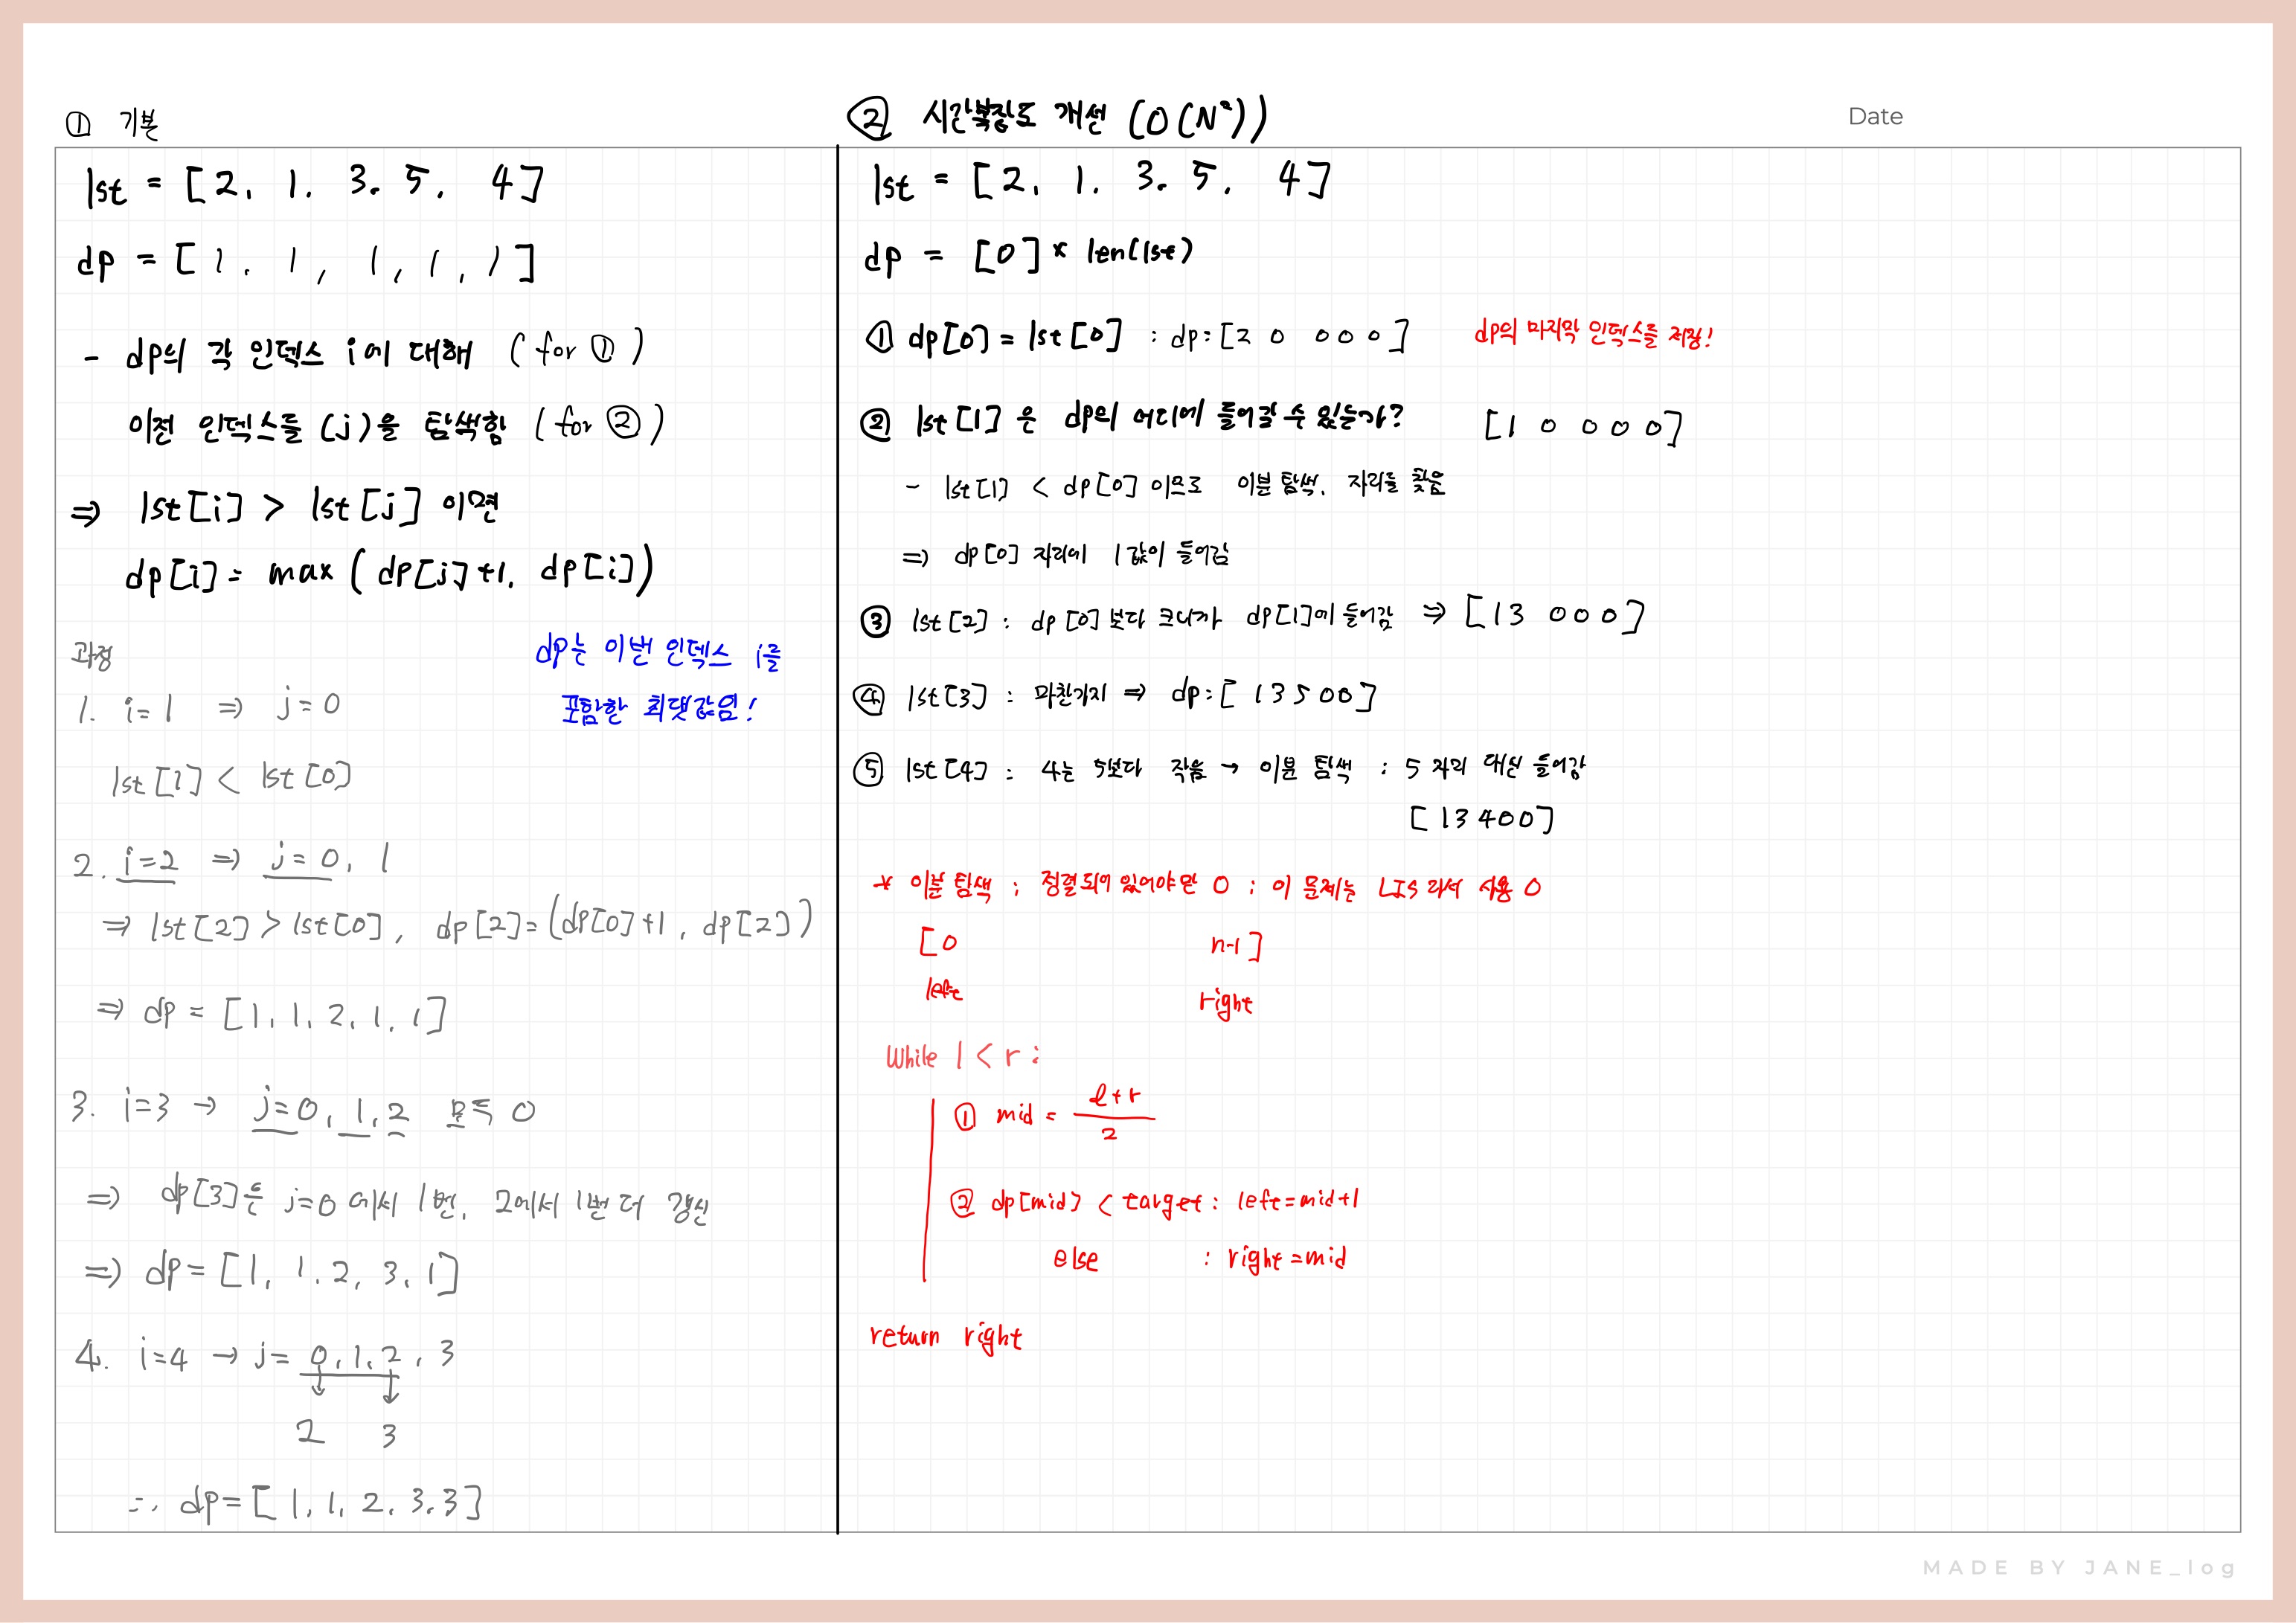 ① 기본
lst = [2, 1. 3. 5. 4]
dp = [1. 1, 1, 1, 1]
- dp의 각 인덱스 i에 대해 (for ①)
이전 인덱스들 (j)을 탐색함 (for ②)
⇒ lst[i] > lst[j] 이면
dp[i] = max (dp[j]+1. dp[i])
과정
dp는 이번 인덱스 i를
포함한 최댓값임!
1. i=1 ⇒ j=0
lst[1] < lst[0]
2. i=2 ⇒ j=0, 1
⇒ lst[2] > lst[0], dp[2]=(dp[0]+1, dp[2])
⇒ dp = [1, 1, 2, 1, 1]
3. i=3 → j=0, 1, 2 모두 O
⇒ dp[3]은 j=0에서 1번, 2에서 1번 더 갱신
⇒ dp = [1, 1. 2, 3, 1]
4. i=4 → j= 0, 1, 2, 3
2 3
∴ dp=[1, 1, 2, 3. 3]
② 시간복잡도 개선 (O(N²))
Date
lst = [2, 1. 3. 5. 4]
dp = [0] * len(lst)
① dp[0] = lst[0] : dp=[2 0 0 0 0] dp의 마지막 인덱스를 저장!
② lst[1] 은 dp의 어디에 들어갈 수 있는가? [1 0 0 0 0]
- lst[1] < dp[0] 이므로 이분 탐색, 자리를 찾음
⇒ dp[0] 자리에 1 값이 들어감
③ lst[2] : dp[0]보다 크니까 dp[1]에 들어감 ⇒ [1 3 0 0 0]
④ lst[3] : 마찬가지 ⇒ dp=[1 3 5 0 0]
⑤ lst[4] : 4는 5보다 작음 → 이분 탐색 : 5 자리 대신 들어감
[1 3 4 0 0]
* 이분 탐색 ; 정렬되어 있어야만 O ; 이 문제는 LIS 라서 사용 O
[0 n-1]
left right
While l < r :
① mid = l+r
2
② dp[mid] < target : left=mid+1
else : right=mid
return right
MADE BY JANE_log